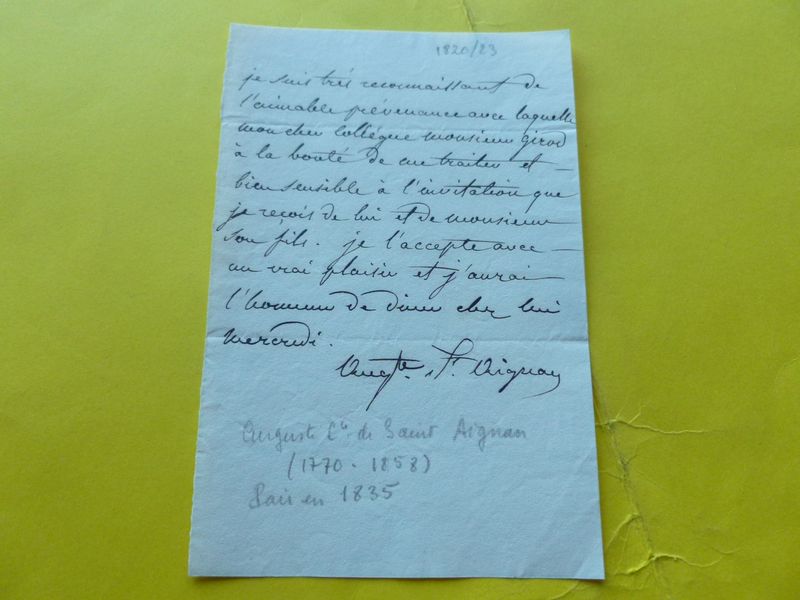 1820/23
je suis très reconnaissant de
l'aimable prévenance avec laquelle
mon cher collègue monsieur girod
à la bonté de me traiter et —
bien sensible à l'invitation que
je reçois de lui et de monsieur
son fils. je l'accepte avec —
un vrai plaisir et j'aurai
l'honneur de diner chez lui
mercredi.
Augte. St. Aignan
Auguste Cte de Saint Aignan
(1770 - 1858)
Pair en 1835